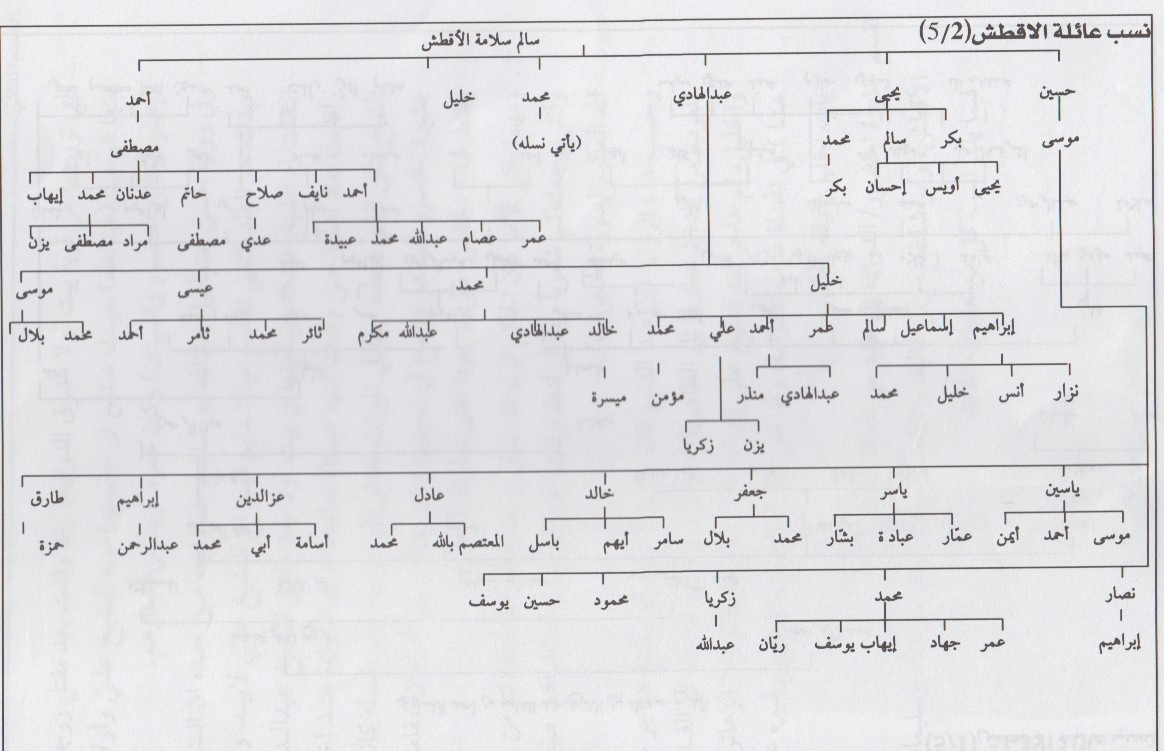 نسب عائلة الاقطش(5/2)
سالم سلامة الأقطش
حسين يحيى عبدالهادي محمد خليل أحمد
موسى بكر سالم محمد (يأتي نسله) مصطفى
يحيى أويس إحسان بكر أحمد نايف صلاح حاتم عدنان محمد إيهاب
عمر عصام عبدالله محمد عبيدة عدي مصطفى مراد مصطفى يزن
خليل محمد عيسى موسى
إبراهيم إسماعيل سالم عمر أحمد علي محمد خالد عبدالهادي عبدالله مكرم ثائر محمد ثامر أحمد محمد بلال
نزار أنس خليل محمد عبدالهادي منذر مؤمن ميسرة
يزن زكريا
ياسين ياسر جعفر خالد عادل عزالدين إبراهيم طارق
موسى أحمد أيمن عمّار عبادة بشّار محمد بلال سامر أيهم باسل المعتصم بالله محمد أسامة أبي محمد عبدالرحمن حمزة
نصار محمد زكريا محمود حسين يوسف
إبراهيم عمر جهاد إيهاب يوسف ريّان عبدالله